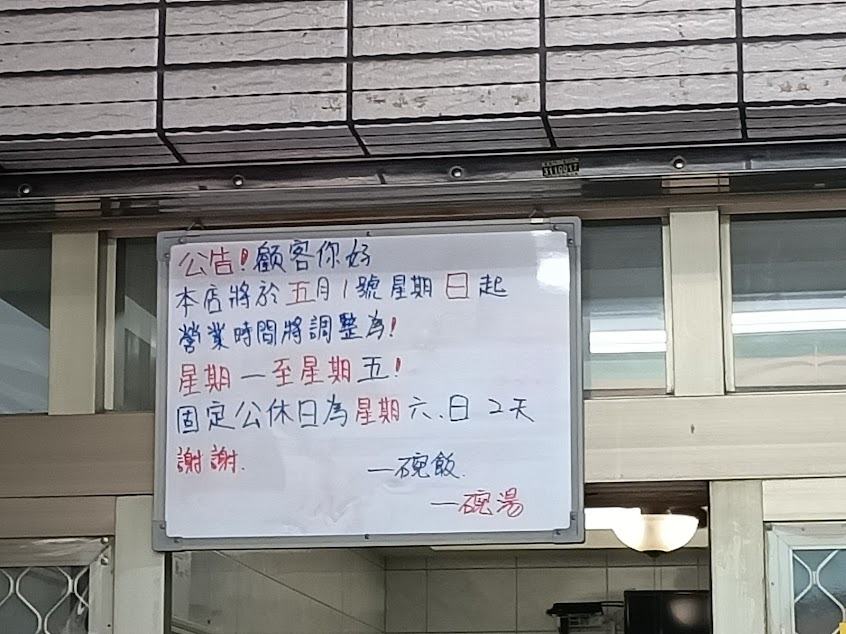 3110017
公告!顧客你好
本店將於五月1號星期日起
營業時間將調整為!
星期一至星期五!
固定公休日為星期六、日 2天
謝謝.
一碗飯.
一碗湯